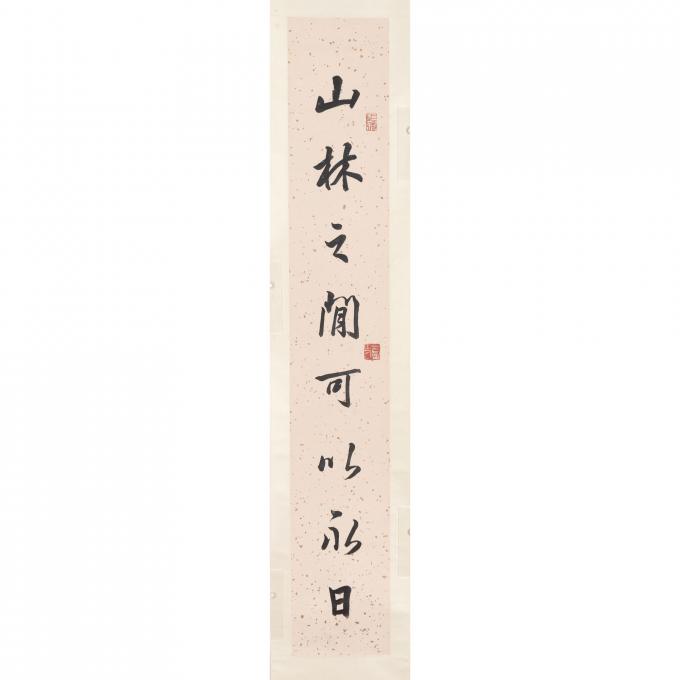 山林之閒可以永日